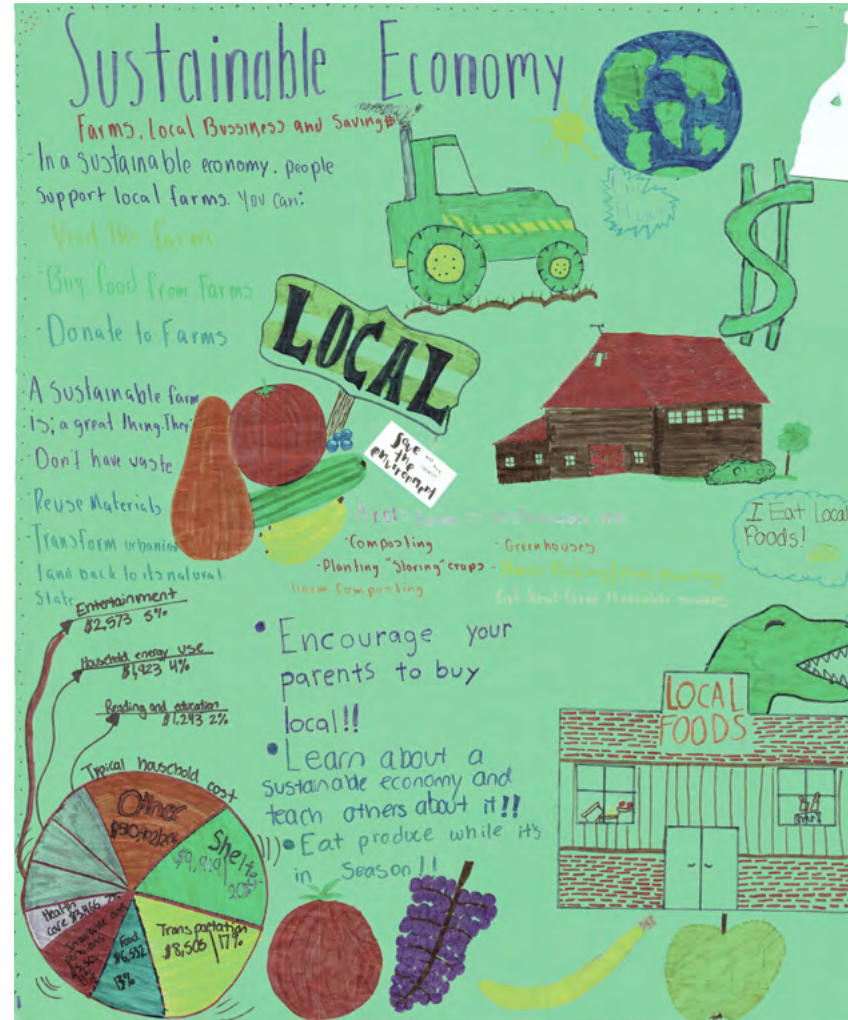 Sustainable Economy
Farms, Local Bussiness and Saving$
-In a sustainable economy, people
support local farms. You can:
Visit the farms
-Buy food from Farms
-Donate to Farms
LOCAL
A sustainable farm
is; a great thing. They:
Don't have waste
Reuse Materials
-Transform urbanism
land back to its natural
State
Save
the
environment
-Composting
-Planting "Storing" crops
Worm Composting
-Greenhouses
I Eat Local
Foods!
Entertainment
$2,573 5%
Household energy use
$1,923 4%
Reading and education
$1,243 2%
Typical household cost
Other
Shelter
$9,819
20%
Transportation
$8,505 17%
Food
$6,532
13%
Health
care
• Encourage your
parents to buy
local!!
• Learn about a
sustainable economy and
teach others about it!!
• Eat produce while it's
in Season!!
LOCAL
FOODS